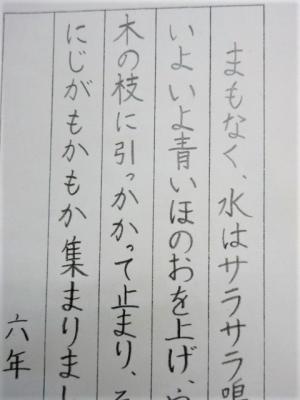 まもなく、水はサラサラ鳴
いよいよ青いほのおを上げ、
木の枝に引っかかって止まり、そ
にじがもかもか集まりまし
六年